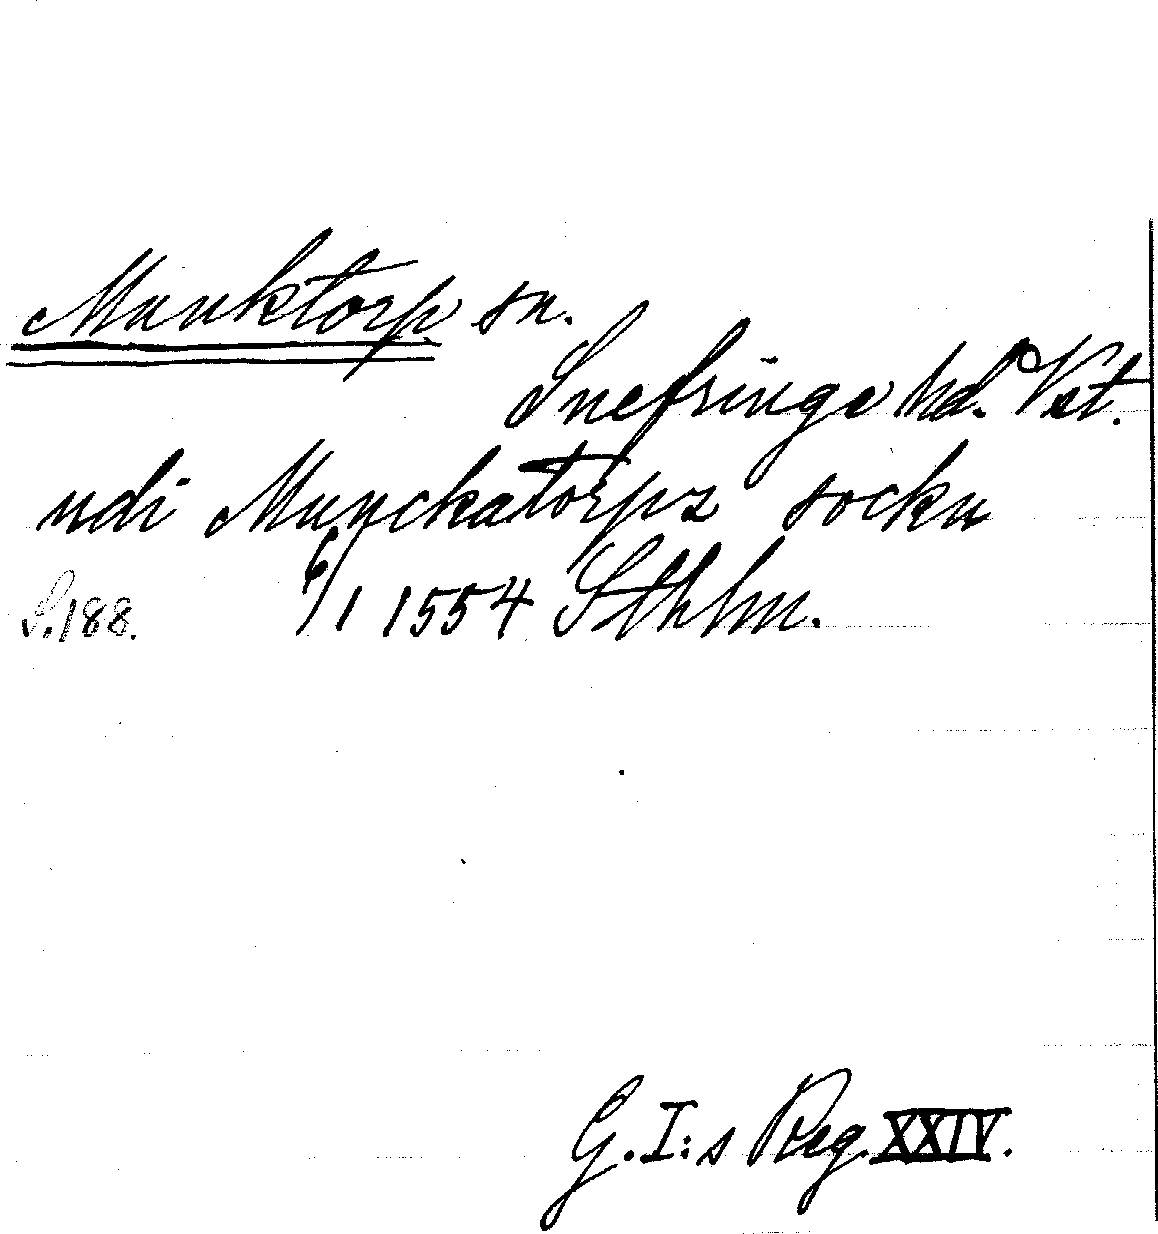 Munktorp sn.
Snefringe hd. Vst.
udi Munckatorps sockn
S.188. 6/1 1554 Sthlm.
G.I:s Reg. XXIV.